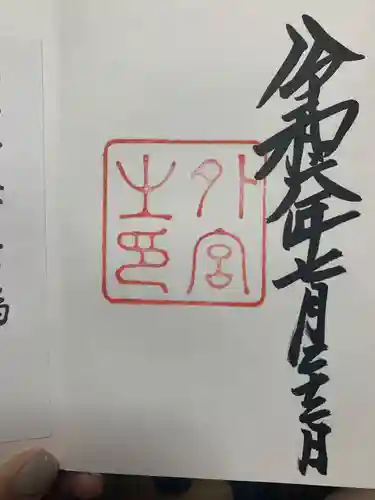 令和六年七月二十三日
外宮
之印